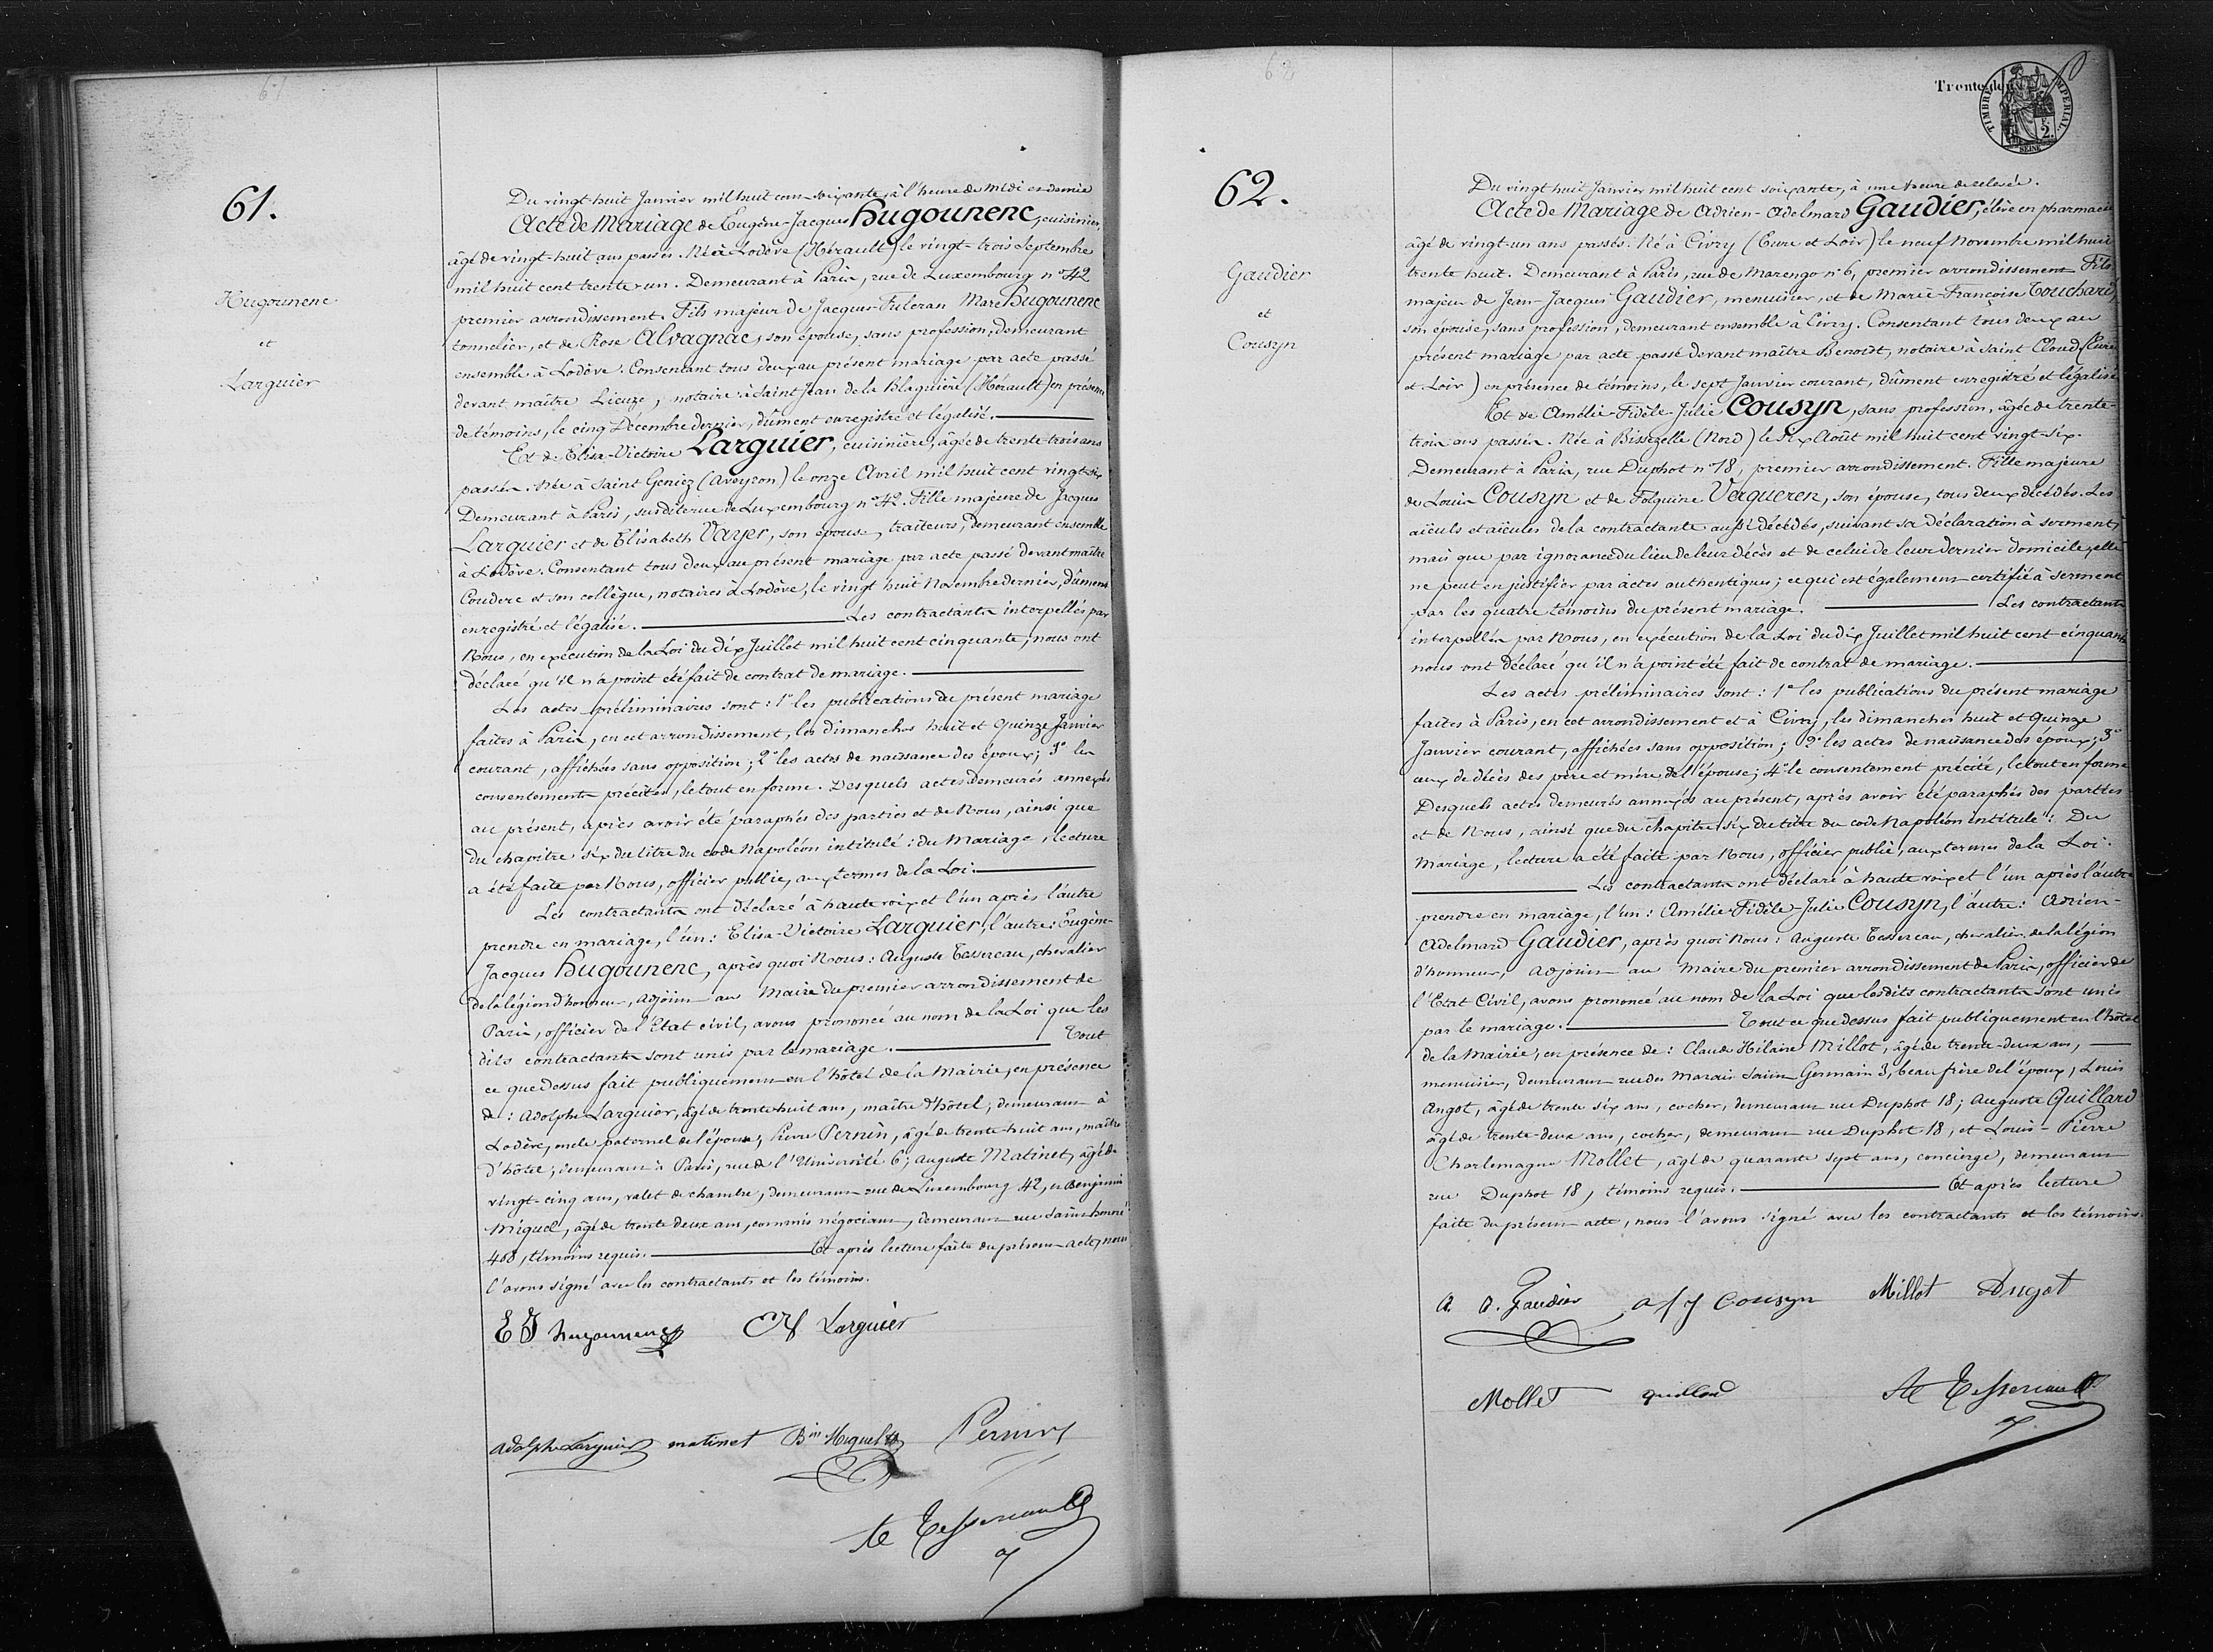 61
61.
Hugounenc
et
Larguier
Du vingt-huit Janvier mil huit cent soixante, à l'heure de midi et demie
Acte de Mariage de Eugène-Jacques Hugounenc, cuisinier,
âgé de vingt-huit ans passés. Né à Lodève (Hérault) le vingt-trois Septembre
mil huit cent trente-un. Demeurant à Paris, rue de Luxembourg n° 42
premier arrondissement. Fils majeur de Jacques-Fulcran Marc Hugounenc
tonnelier, et de Rose Alvagnac, son épouse, sans profession, demeurant
ensemble à Lodève. Consentant tous deux au présent mariage par acte passé
devant maître Lieuze, notaire à Saint Jean de la Blaquière (Hérault) en présence
de témoins, le cinq Décembre dernier, dûment enregistré et légalisé.
Et de Elisa-Victoire Larguier, cuisinière, âgée de trente-trois ans
passés. Née à Saint Geniez (Aveyron) le onze Avril mil huit cent vingt-six
Demeurant à Paris, susdite rue de Luxembourg n° 42. Fille majeure de Jacques
Larguier et de Elisabeth Vayer, son épouse, traiteurs, demeurant ensemble
à Lodève. Consentant tous deux au présent mariage par acte passé devant maître
Couderc et son collègue, notaires à Lodève, le vingt huit Novembre dernier, dûment
enregistré et légalisé. Les contractants interpellés par
Nous, en exécution de la Loi du dix Juillet mil huit cent cinquante, nous ont
déclaré qu'il n'a point été fait de contrat de mariage.
Les actes préliminaires sont : 1° les publications du présent mariage
faites à Paris, en cet arrondissement, les dimanches huit et quinze Janvier
courant, affichées sans opposition ; 2° les actes de naissance des époux ; 3° les
consentements précités, le tout en forme. Desquels actes demeurés annexés
au présent, après avoir été paraphés des parties et de Nous, ainsi que
du chapitre six du titre du code Napoléon intitulé : du Mariage, lecture
a été faite par Nous, officier public, aux termes de la Loi.
Les contractants ont déclaré à haute voix et l'un après l'autre
prendre en mariage, l'un : Elisa-Victoire Larguier, l'autre : Eugène-
Jacques Hugounenc, après quoi Nous : Auguste Tessereau, chevalier
de la légion d'honneur, adjoint au Maire du premier arrondissement de
Paris, officier de l'Etat civil, avons prononcé au nom de la Loi que les
dits contractants sont unis par le mariage. Tout
ce que dessus fait publiquement en l'hôtel de la Mairie, en présence
de : Adolphe Larguier, âgé de trente huit ans, maître d'hôtel, demeurant à
Lodève, oncle paternel de l'épouse, Pierre Pernin, âgé de trente-huit ans, maître
d'hôtel, demeurant à Paris, rue de l'Université 6 ; Auguste Matinet, âgé de
vingt-cinq ans, valet de chambre, demeurant rue de Luxembourg 42, et Benjamin
Miquel, âgé de trente deux ans, commis négociant, demeurant rue Saint honoré
408, témoins requis. Et après lecture faite du présent acte, nous
l'avons signé avec les contractants et les témoins.
E J hugounenc Larguier
Adolphe Larguier matinet Bin Miquel Pernin
Ate Tessereau
62
Trente deux
TIMBRE IMPERIAL
2
SEINE
62.
Gaudier
et
Cousyn
Du vingt huit Janvier mil huit cent soixante, à une heure de relevée.
Acte de Mariage de Adrien-Adelmard Gaudier, élève en pharmacie
âgé de vingt-un ans passés. Né à Civry (Eure et Loir) le neuf Novembre mil huit
trente huit. Demeurant à Paris, rue de Marengo n° 6, premier arrondissement. Fils
majeur de Jean-Jacques Gaudier, menuisier, et de Marie-Françoise Touchard,
son épouse, sans profession, demeurant ensemble à Civry. Consentant tous deux au
présent mariage par acte passé devant maître Benoist, notaire à Saint Cloud (Eure
et Loir) en présence de témoins, le sept Janvier courant, dûment enregistré et légalisé
Et de Amélie-Fidèle-Julie Cousyn, sans profession, âgée de trente-
trois ans passés. Née à Bissezelle (Nord) le six Août mil huit cent vingt-six.
Demeurant à Paris, rue Duphot n° 18, premier arrondissement. Fille majeure
de Louis Cousyn et de Folquine Verqueren, son épouse, tous deux décédés. Les
aïeuls et aïeules de la contractante aussi décédés, suivant sa déclaration à serment,
mais que par ignorance du lieu de leur décès et de celui de leur dernier domicile, elle
ne peut en justifier par actes authentiques ; ce qui est également certifié à serment
par les quatre témoins du présent mariage. Les contractants
interpellés par Nous, en exécution de la Loi du dix Juillet mil huit cent cinquante
nous ont déclaré qu'il n'a point été fait de contrat de mariage.
Les actes préliminaires sont : 1° les publications du présent mariage
faites à Paris, en cet arrondissement et à Civry, les dimanches huit et quinze
Janvier courant, affichées sans opposition ; 2° les actes de naissance des époux ; 3°
ceux de décès des père et mère de l'épouse ; 4° le consentement précité, le tout en forme
Desquels actes demeurés annexés au présent, après avoir été paraphés des parties
et de Nous, ainsi que du chapitre six du titre du code Napoléon intitulé : Du
Mariage, lecture a été faite par Nous, officier public, aux termes de la Loi.
Les contractants ont déclaré à haute voix et l'un après l'autre
prendre en mariage, l'un : Amélie-Fidèle-Julie Cousyn, l'autre : Adrien-
Adelmard Gaudier, après quoi Nous : Auguste Tessereau, chevalier de la légion
d'honneur, adjoint au Maire du premier arrondissement de Paris, officier de
l'Etat Civil, avons prononcé au nom de la Loi que lesdits contractants sont unis
par le mariage. Tout ce que dessus fait publiquement en l'hôtel
de la Mairie, en présence de : Claude Hilaire Millot, âgé de trente-deux ans,
menuisier, demeurant rue des Marais Saint Germain 3, beau frère de l'époux, Louis
Angot, âgé de trente six ans, cocher, demeurant rue Duphot 18 ; Auguste Quillard
âgé de trente-deux ans, cocher, demeurant rue Duphot 18, et Louis-Pierre
Charlemagne Mollet, âgé de quarante sept ans, concierge, demeurant
rue Duphot 18, témoins requis. Et après lecture
faite du présent acte, nous l'avons signé avec les contractants et les témoins.
A. A. Gaudier a f j Cousyn Millot Angot
Mollet quillard Ate Tessereau